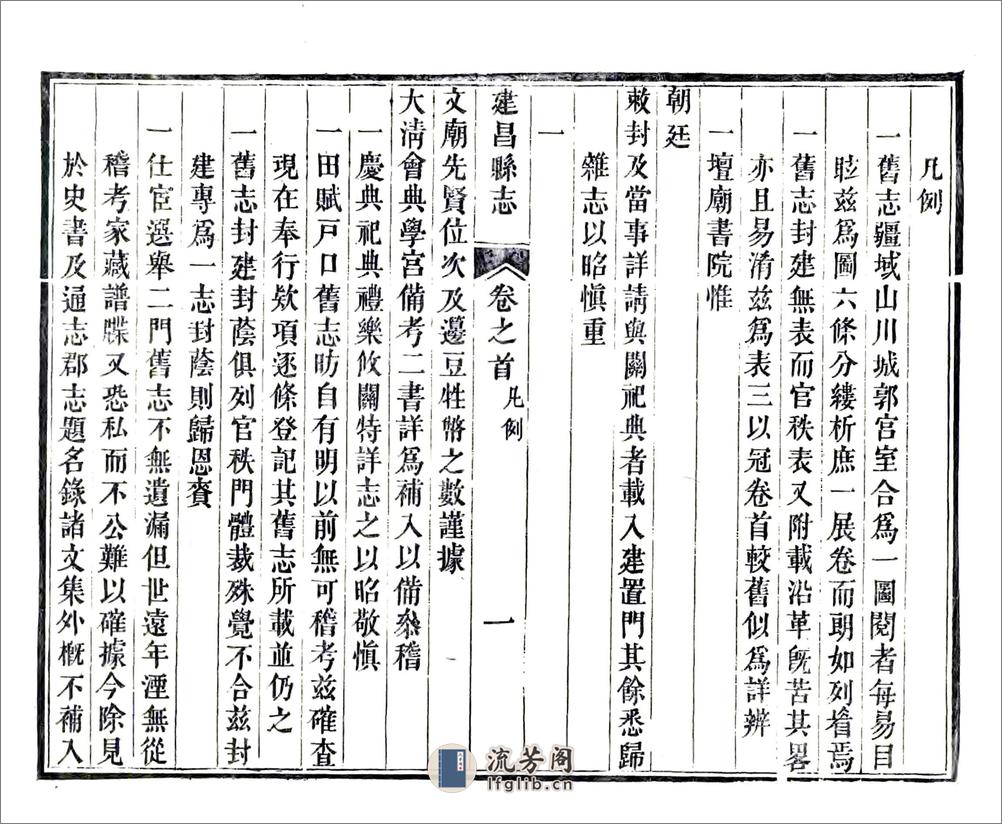 凡例
一舊志疆域山川城郭宮室合爲一圖閱者每易目
眩兹爲圖六條分縷析庶一展卷而朗如列睂焉
一舊志封建無表而官秩表又附載沿革旣苦其畧
亦且易淆兹爲表三以冠卷首較舊似爲詳辨
一壇廟書院惟
朝廷
敕封及當事詳請與關祀典者載入建置門其餘悉歸
雜志以昭愼重
一
建昌縣志 卷之首 凡例 一
文廟先賢位次及邊豆牲幣之數謹據
大淸會典學宮備考二書詳爲補入以備叅稽
一慶典祀典禮樂攸關特詳志之以昭敬愼
一田賦戸口舊志昉自有明以前無可稽考兹確查
現在奉行欵項逐條登記其舊志所載並仍之
一舊志封建封蔭俱列官秩門體裁殊覺不合兹封
建專爲一志封蔭則歸恩賚
一仕宦選舉二門舊志不無遺漏但世遠年湮無從
稽考家藏譜牒又恐私而不公難以確據今除見
於史書及通志郡志題名錄諸文集外槪不補入
流芳阁
lfglib.cn